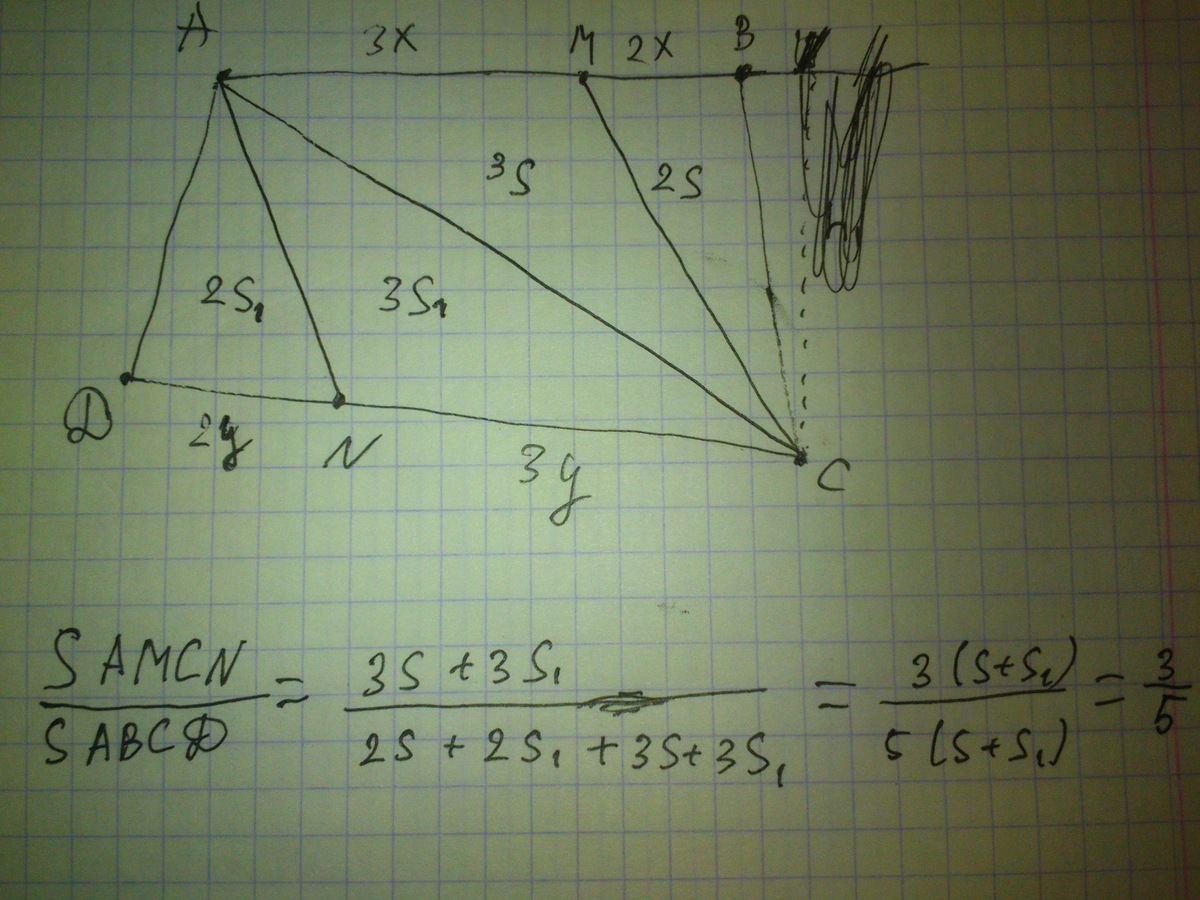 A 3x M 2x B
3S 2S
2S₁ 3S₁
D 2y N 3y C
S AMCN / S ABCD = 3S + 3S₁ / 2S + 2S₁ + 3S + 3S₁ = 3 (S+S₁) / 5 (S+S₁) = 3/5